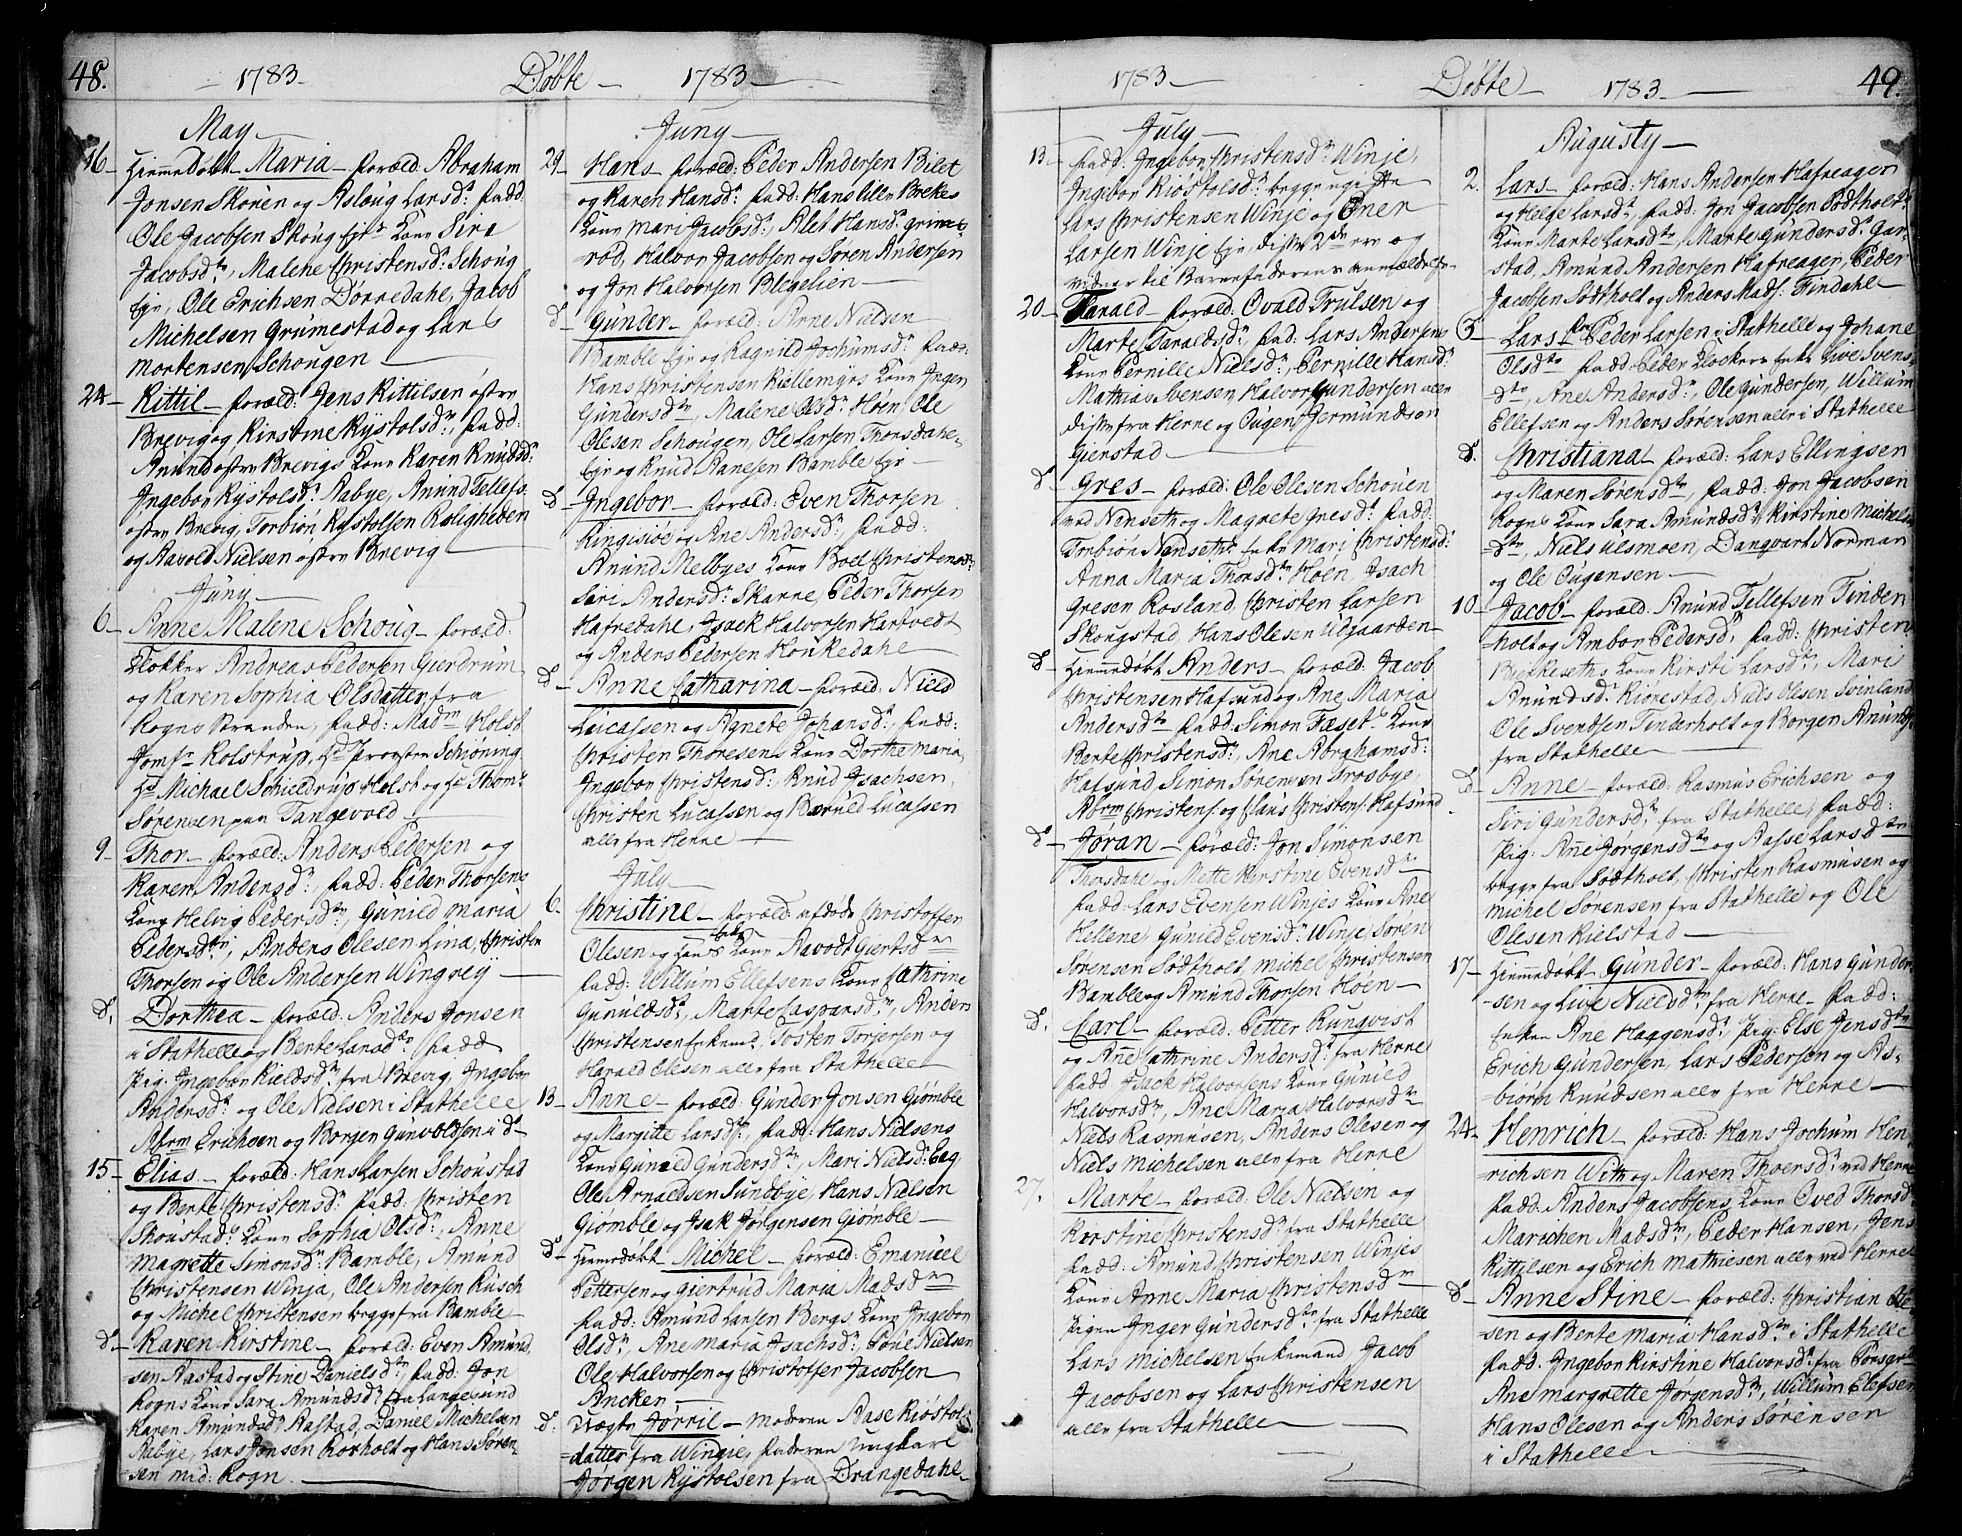 48.
1783
Döbte
1783
May
16 Hiemedöbt Maria foræld. Abraham
Jonsen Skoren og Asloug Larsd: fadd:
Ole Jacobsen Skoug Eje Kone Siri
Jacobsd:, Malene Christensd: Schoug
Eje, Ole Erichsen Dörredahl, Jacob
Michelsen Grumestad og Lars
Mortensen Schougen
24 Kittil foræld: Jens Kittilsen östre
Brevig og Kirstine Kystolsd:, fadd:
Anund östre Brevigs Kone Karen Knudsd:
Ingebor Kystolsd: Aabye, Anund Tellefs.
östre Brevig, Torbiön Kystolsen Roligheden
og Aavold Nielsen östre Brevig
Juny
6 Anne Malene Schoug foræld:
Klokker Andreas Pedersen Gierdrum
og Karen Sophia Olsdatter fra
Rogns Stranden, fadd: Madm Holst
Jomfr Rolstrup, Hd Provsten Schioning
Hd Michael Schieldrup Holst og Hr Thoms
Sörensen paa Tangevald
9 Thor foræld. Anders Pedersen og
Karen Andersd:, fadd: Peder Thorsens
Kone Helvig Pedersd:, Gunild Maria
Pedersd:, Anders Olesen Lina, Christen
Thorsen og Ole Andersen Wingrej
d: Dorthea foræld. Anders Jonsen
i Stathelle og Berte Larsd: fadd
Pig: Ingebor Kieldsd: fra Brevig, Ingebor
Andersd: og Ole Nielsen i Stathelle
Abrm Erichsen og Borgen Gunvoldsen i d:
15 Elias foræld: Hans Larsen Schoustad
og Berte Christensd: fadd: Christen
Skoustads Kone Sophia Olsd:, Anne
Magrette Simonsd: Bamble, Amund
Christensen Winja, Ole Andersen Rusch
og Michel Christensen begge fra Bamble
d: Karen Kirstine foræld: Even Amund
sen Aastad og Stine Danielsd: fadd: Jon
Rogns Kone Sara Amundsd: fra Langesund
Karen Amundsd: Aastad, Daniel Michelsen
Aabye, Lars Jonsen Korholt og Hans Sören-
sen mad: Rogn
29 Hans foræld: Peder Andersen Bilet
og Karen Hansd: fadd: Hans Ulv Brekes
Kone Mari Jacobsd:, Alet Hansd: Grime-
röd, Halvor Jacobsen og Sören Andersen
og Jon Halvorsen Blegelien
d: Gunder foræld: Arne Nielsen
Bamble Eje og Ragnild Jochumsd: fadd:
Hans Christensen Kiellemyrs Kone Ingen
Gundersd:, Malene Olsd: Hoen, Ole
Olesen Schougen, Ole Larsen Thorsdahl
Eje og Knud Aanesen Bamble Eje
d: Ingebor foræld: Even Thorsen
Ringisöe og Ane Andersd: fadd:
Anund Melbyes Kone Boel Christensd:
Sari Andersd: Skarre, Peder Thorsen
Hafredahl, Isack Halvorsen Hartvedt
og Anders Pedersen Houkedahl
d: Anne Catharina foræld: Niels
Lucassen og Agnete Johansd: fadd:
Christen Thoresens Kone Dorthe Maria
Ingebor Christensd:, Knud Isachsen,
Christen Lucassen og Baruld Lucassen
alle fra Herre
July
6. Christine foræld: afdöde Christoffer
Olesen og Hans Kone Aavodt Giertsd:
fadd: Willum Ellefsens Kone Cathrine
Gunuldsd:, Marte Caspersd:, Anders
Christensen Enkem:, Tosten Torjersen og
Harald Elesen alle fra Stathelle
13 Anne foræld: Gunder Jonsen Giömble
og Margitte Larsd:, fadd: Hans Nielsens
Kone Gunild Gundersd:, Mari Nielsd: Eeg
Ole Arnaldsen Sundbye, Hans Nielsen
Giömble og Isak Jörgensen Giömble
d: Hiemedöbt Michel foræld: Emanuel
Pettersen og Giertrud Maria Madsd:
fadd: Amund Larsen Bergs Kone Ingebor
Olsd:, Ane Maria Isachsd:, Töne Nielsen
Ole Halvorsen og Christoffer Jacobsen
Ancken
d: Uægte Jörril Moderen Aase Kiöstol-
datter fra Wingie, faderen ungkarl
Jörgen Kystolsen fra Drangedahl
1783
Döbte
1783
49.
July
13. fadd: Ingebor Christensd: Winje,
Ingebor Kiöstolsd: begge ugifte
Lars Christensen Winje og Oner
Larsen Winje Eje, disse 2de ere og
vidner til Barnefaderens anmeldelse
20 Tarald foræld: Ovald Trulsen og
Marte Taraldsd:, fad: Lars Andersens
Kone Pernille Nielsd:, Pernille Hansd:
Mathias Svensen Halvor Gundersen alle
disse fra Herre og Ougen Germundsen
Gierstad
d: Gres foræld: Ole Olesen Schouen
ved Nenseth og Magrete Gresd: fadd:
Torbiön Nenseths Enke Mari Christensd:
Anna Maria Thorsd: Hoen, Isach
Gresen Rosland, Christen Larsen
Skougstad, Hans Olesen Udgaarden
d: Hiemedöbt Anders foræld: Jacob
Christensen Hafsund og Ane Maria
Andersd: fadd. Simon Fæsets Kone
Berte Christensd:, Ane Abrahamsd:
Hafsund, Simon Sörensen Trosbye,
Abrm Christens: og Claus Christens: Hafsund
d: Jöran foræld: Jon Simonsen
Thorsdahl og Mette Kirstine Evensd:
fadd: Lars Evensen Winjes Kone Ane
Hellene, Gunild Evensd: Winje, Sören
Sörensen Södtholt, Michel Christensen
Bamble og Amund Thorsen Höen
d: Carl foræld: Petter Runqvist
og Ane Cathrine Andersd: fra Herre
fadd: Isack Halvorsens Kone Gunild
Halvorsd:, Ane Maria Halvorsd:
Niels Rasmusen, Anders Olesen og
Niels Michelsen alle fra Herre
27. Marte foræld: Ole Nielsen og
Kirstine Christensd: fra Stathelle
fadd: Amund Christensen Winjes
Kone Anne Maria Christensd:
Pigen Inger Gundersd: fra Stathelle
Lars Mickelsen Enkemand, Jacob
Jacobsen og Lars Christensen
alle fra Stathelle
Augusty
2. Lars foræld: Hans Andersen Hafreager
og Helge Larsd:, fadd: Jon Jacobsen Södtholts
Kone Marte Larsd:, Marte Gundersd: Gar-
stad, Amund Andersen Hafreager, Peder
Jacobsen Södtholt og Anders Mads: Findahl
3 Lars for: Peder Larsen i Stathelle og Johane
Olsd: fadd: Peder Klockers Enke Live Svens
d:, Ane Andersd:, Ole Gundersen, Willum
Ellefsen og Anders Sörensen alle i Stathelle
d: Christiana foræld: Lars Ellingsen
og Maren Sörensd:, fadd: Jon Jacobsen
Rogns Kone Sara Amundsd:, Kirstine Michels
d:, Niels Ulsmoen, Danqvart Norman
og Ole Ougensen
10 Jacob foræld: Anund Tellefsen Tinder
holt og Ambor Pedersd:, fadd: Christen
Birkeseths Kone Kirsti Larsd:, Mari
Anundsd: Kiörestad, Niels Olsen Svinland
Ole Svendsen Tinderholt og Borgen Anunds:
fra Stathelle
d: Anne foræld: Rasmus Erichsen og
Siri Gundersd: fra Stathelle, fadd:
Pig: Ane Jörgensd: og Aase Larsd:
begge fra Södtholt, Christen Rasmusen og
Michel Sörensen fra Stathelle og Ole
Olesen Kielstad
17 Hiemedöbt Gunder foræld: Hans Gunder
sen og Live Nielsd: fra Herre fadd:
Enken Ane Haagensd: Pig: Else Jensd:
Erich Gundersen, Lars Pedersen og As-
biörn Knudsen alle fra Herre
24 Henrich foræld: Hans Jochum Hen
richsen With og Maren Thoersd: ved Herre
fadd: Anders Jacobsens Kone Oved Thorsd:
Marichen Madsd:, Peder Hansen, Jens
Kittilsen og Erich Mathiesen alle ved Herre
d: Anne Stine foræld: Christian Ole
sen og Berte Maria Hansd: i Stathelle
fadd: Ingebor Kirstine Halvorsd: fra Porsgr:
Ane Margrette Jörgensd:, Willum Elefsen
Hans Olesen og Anders Sörensen
i Stathelle